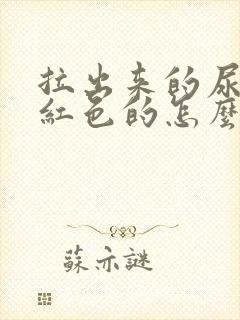 拉出来的尿
紅色的怎麼
蘇亦謎